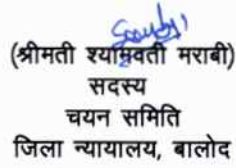 (श्रीमती श्यामवती मराबी)
सदस्य
चयन समिति
जिला न्यायालय, बालोद